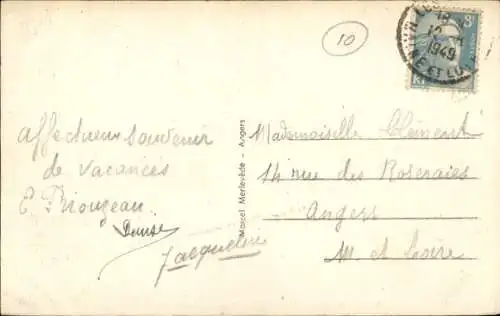 10
8F
1949
NE ET LO
Affectueux souvenir
de vacances
E Biouzeau
Denise
Jacqueline
Marcel Merlevède - Angers
Mademoiselle Clément
14 rue des Roseraies
Angers
M. et Loire